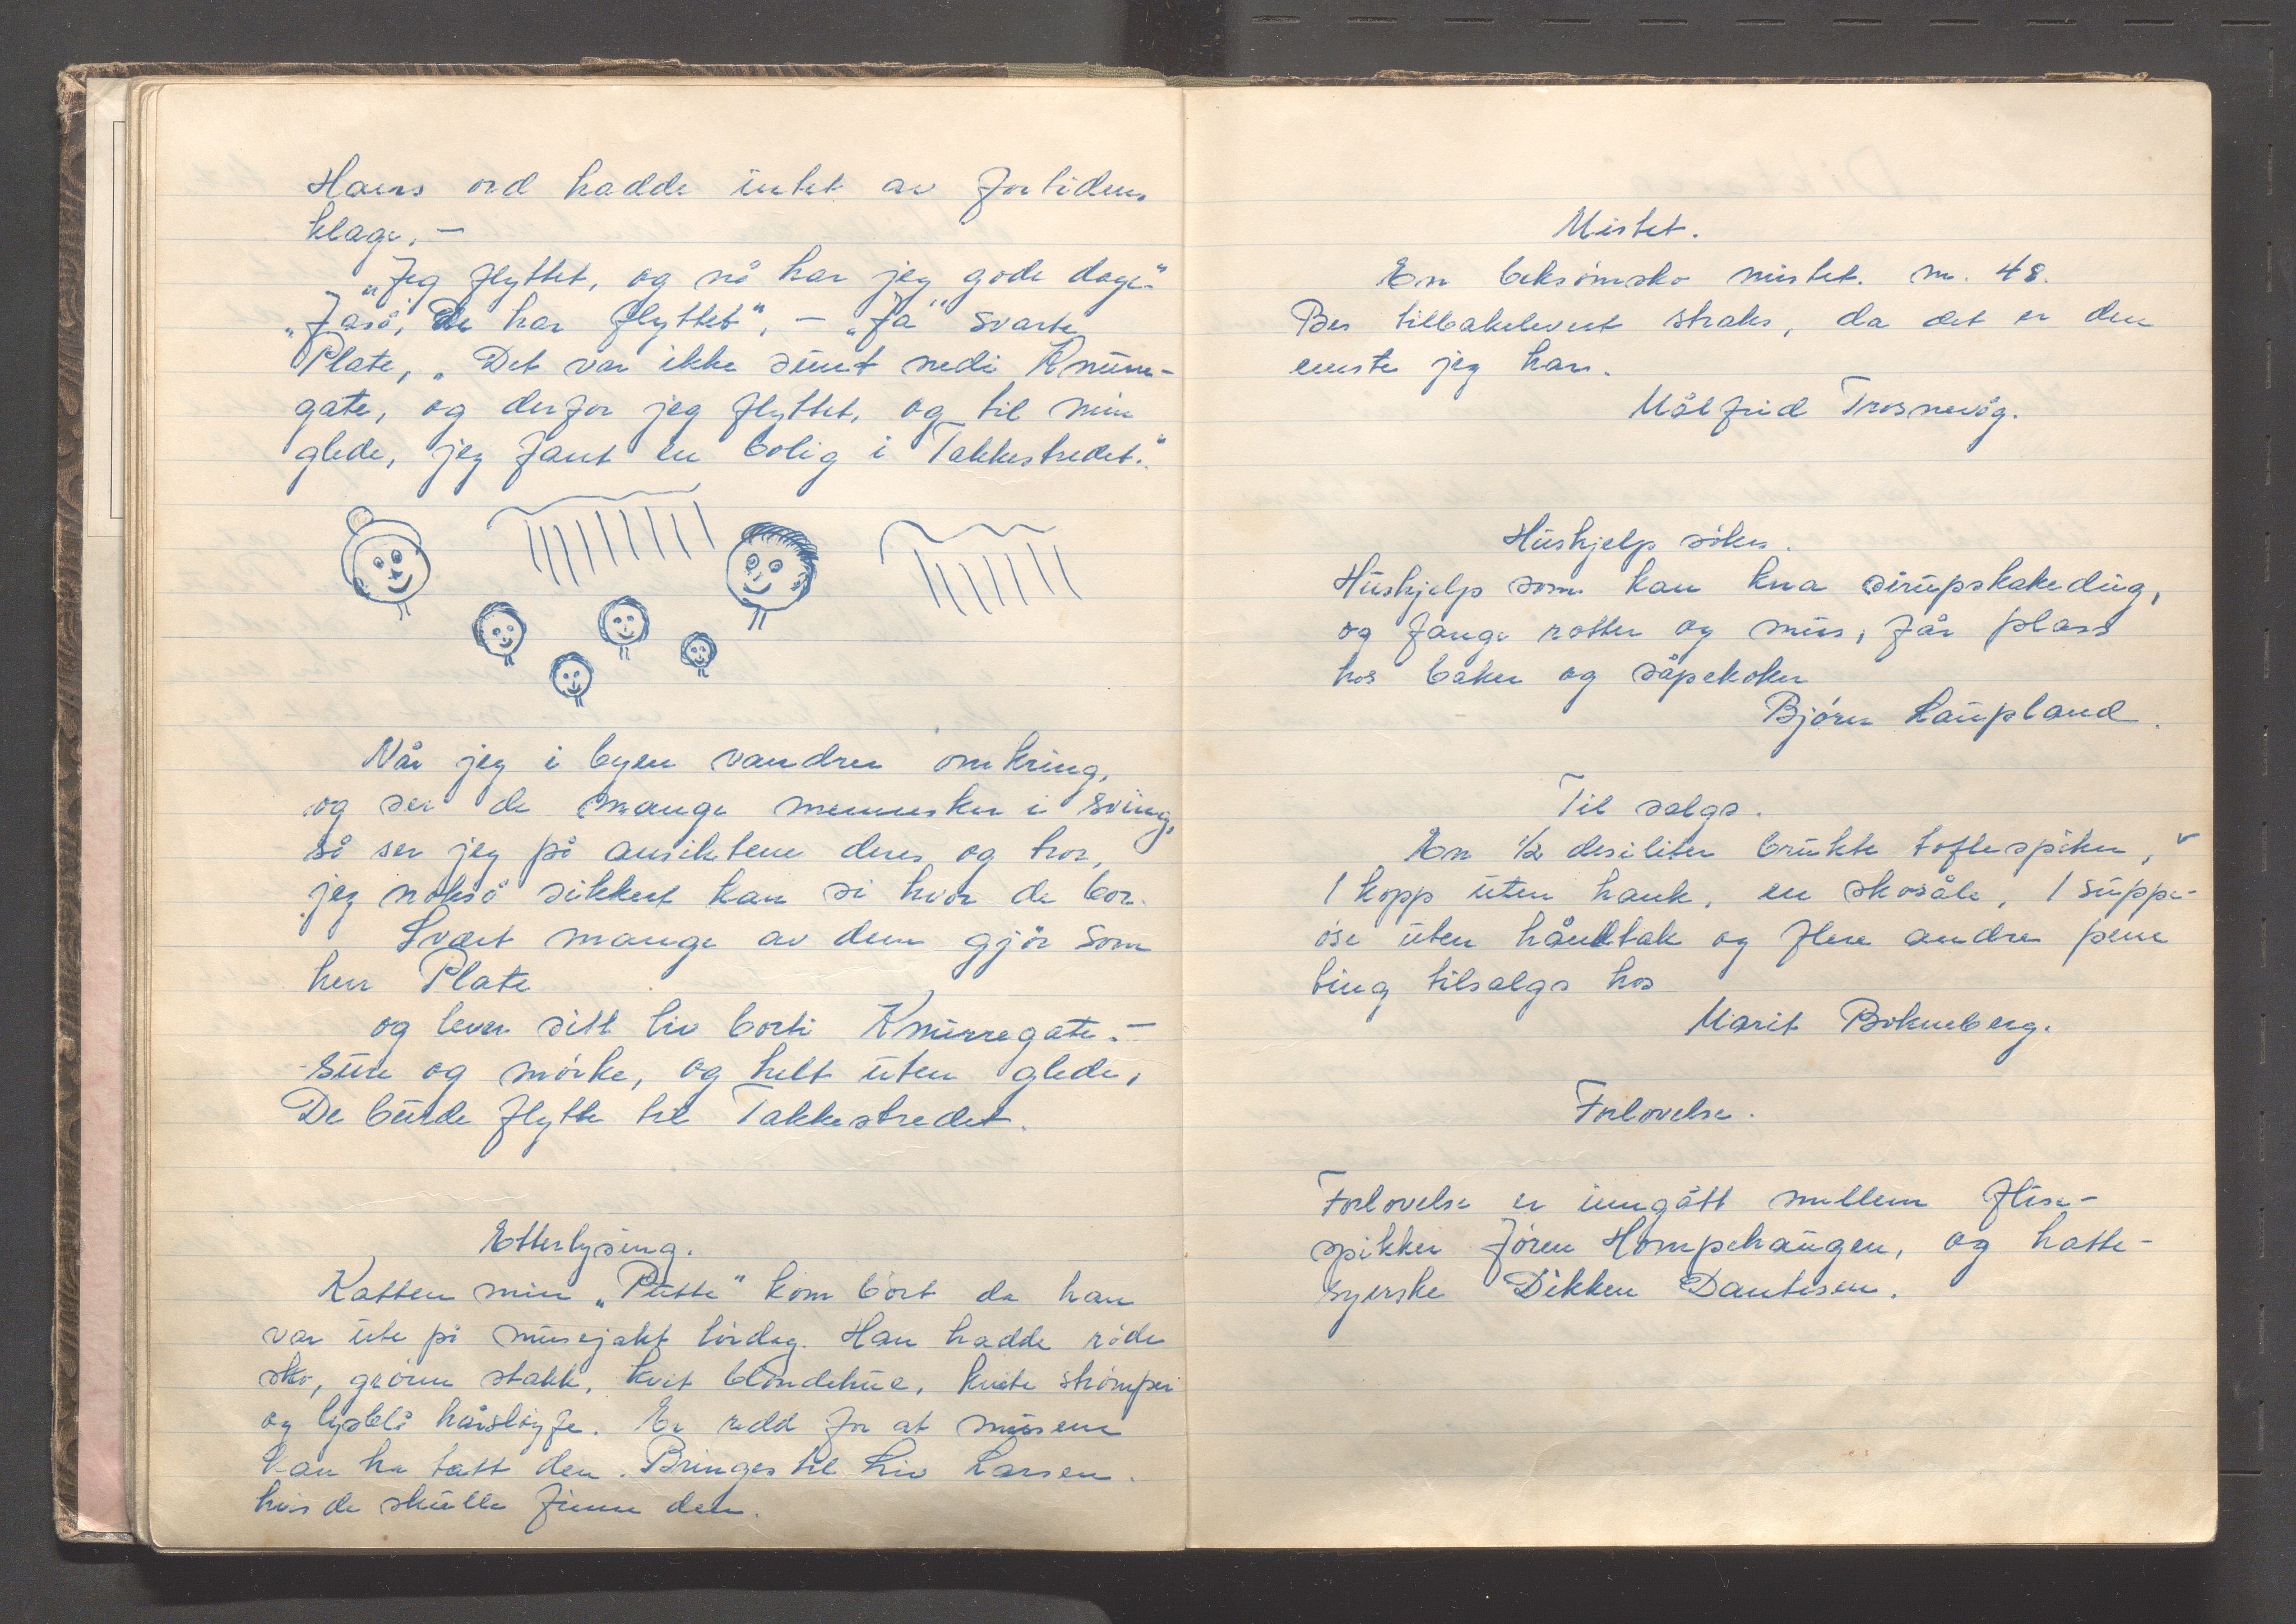 Hans ord hadde intet av fortidens
klage, –
„Jeg flyttet, og nå har jeg gode dage."
„Jaså, De har flyttet", – „Ja" svarte
Plate, „Det var ikke sunt nedi Knurre-
gate, og derfor jeg flyttet, og til min
glede, jeg fant en bolig i Takkestredet."
Når jeg i byen vandrer omkring,
og ser de mange mennesker i sving,
så ser jeg på ansiktene deres og tror,
jeg nokså sikkert kan si hvor de bor.
Svært mange av dem gjør som
herr Plate
og lever sitt liv borti Knurregate. –
Sure og mörke, og helt uten glede,
De burde flytte til Takkestredet.
Etterlysing.
Katten min „Putte" kom bort da han
var ute på musejakt lördag. Han hadde röde
sko, grönn stakk, kvit blondehue, kvite strömper
og lysblå hårslöyfe. Er redd for at musene
kan ha tatt den. Bringes til Liv Larsen.
hvis de skulle finne den.
Mistet.
En beksömsko mistet. nr. 48.
Bes tilbakelevert straks, da det er den
eneste jeg har.
Målfrid Trosnevåg.
Hushjelp sökes.
Hushjelp som kan kna sirupskakedeig,
og fange rotter og mus, får plass
hos baker og såpekoker
Björn Laupland.
Til salgs.
En 1/2 desiliter brukte toflespiker,
1 kopp uten hank, en skosåle, 1 suppe-
öse uten håndtak og flere andre pene
ting tilsalgs hos
Marit Bokneberg.
Forlovelse.
Forlovelse er inngått mellem flise-
spikker Jören Hompehaugen, og hatte-
syerske Dikken Dantesen.